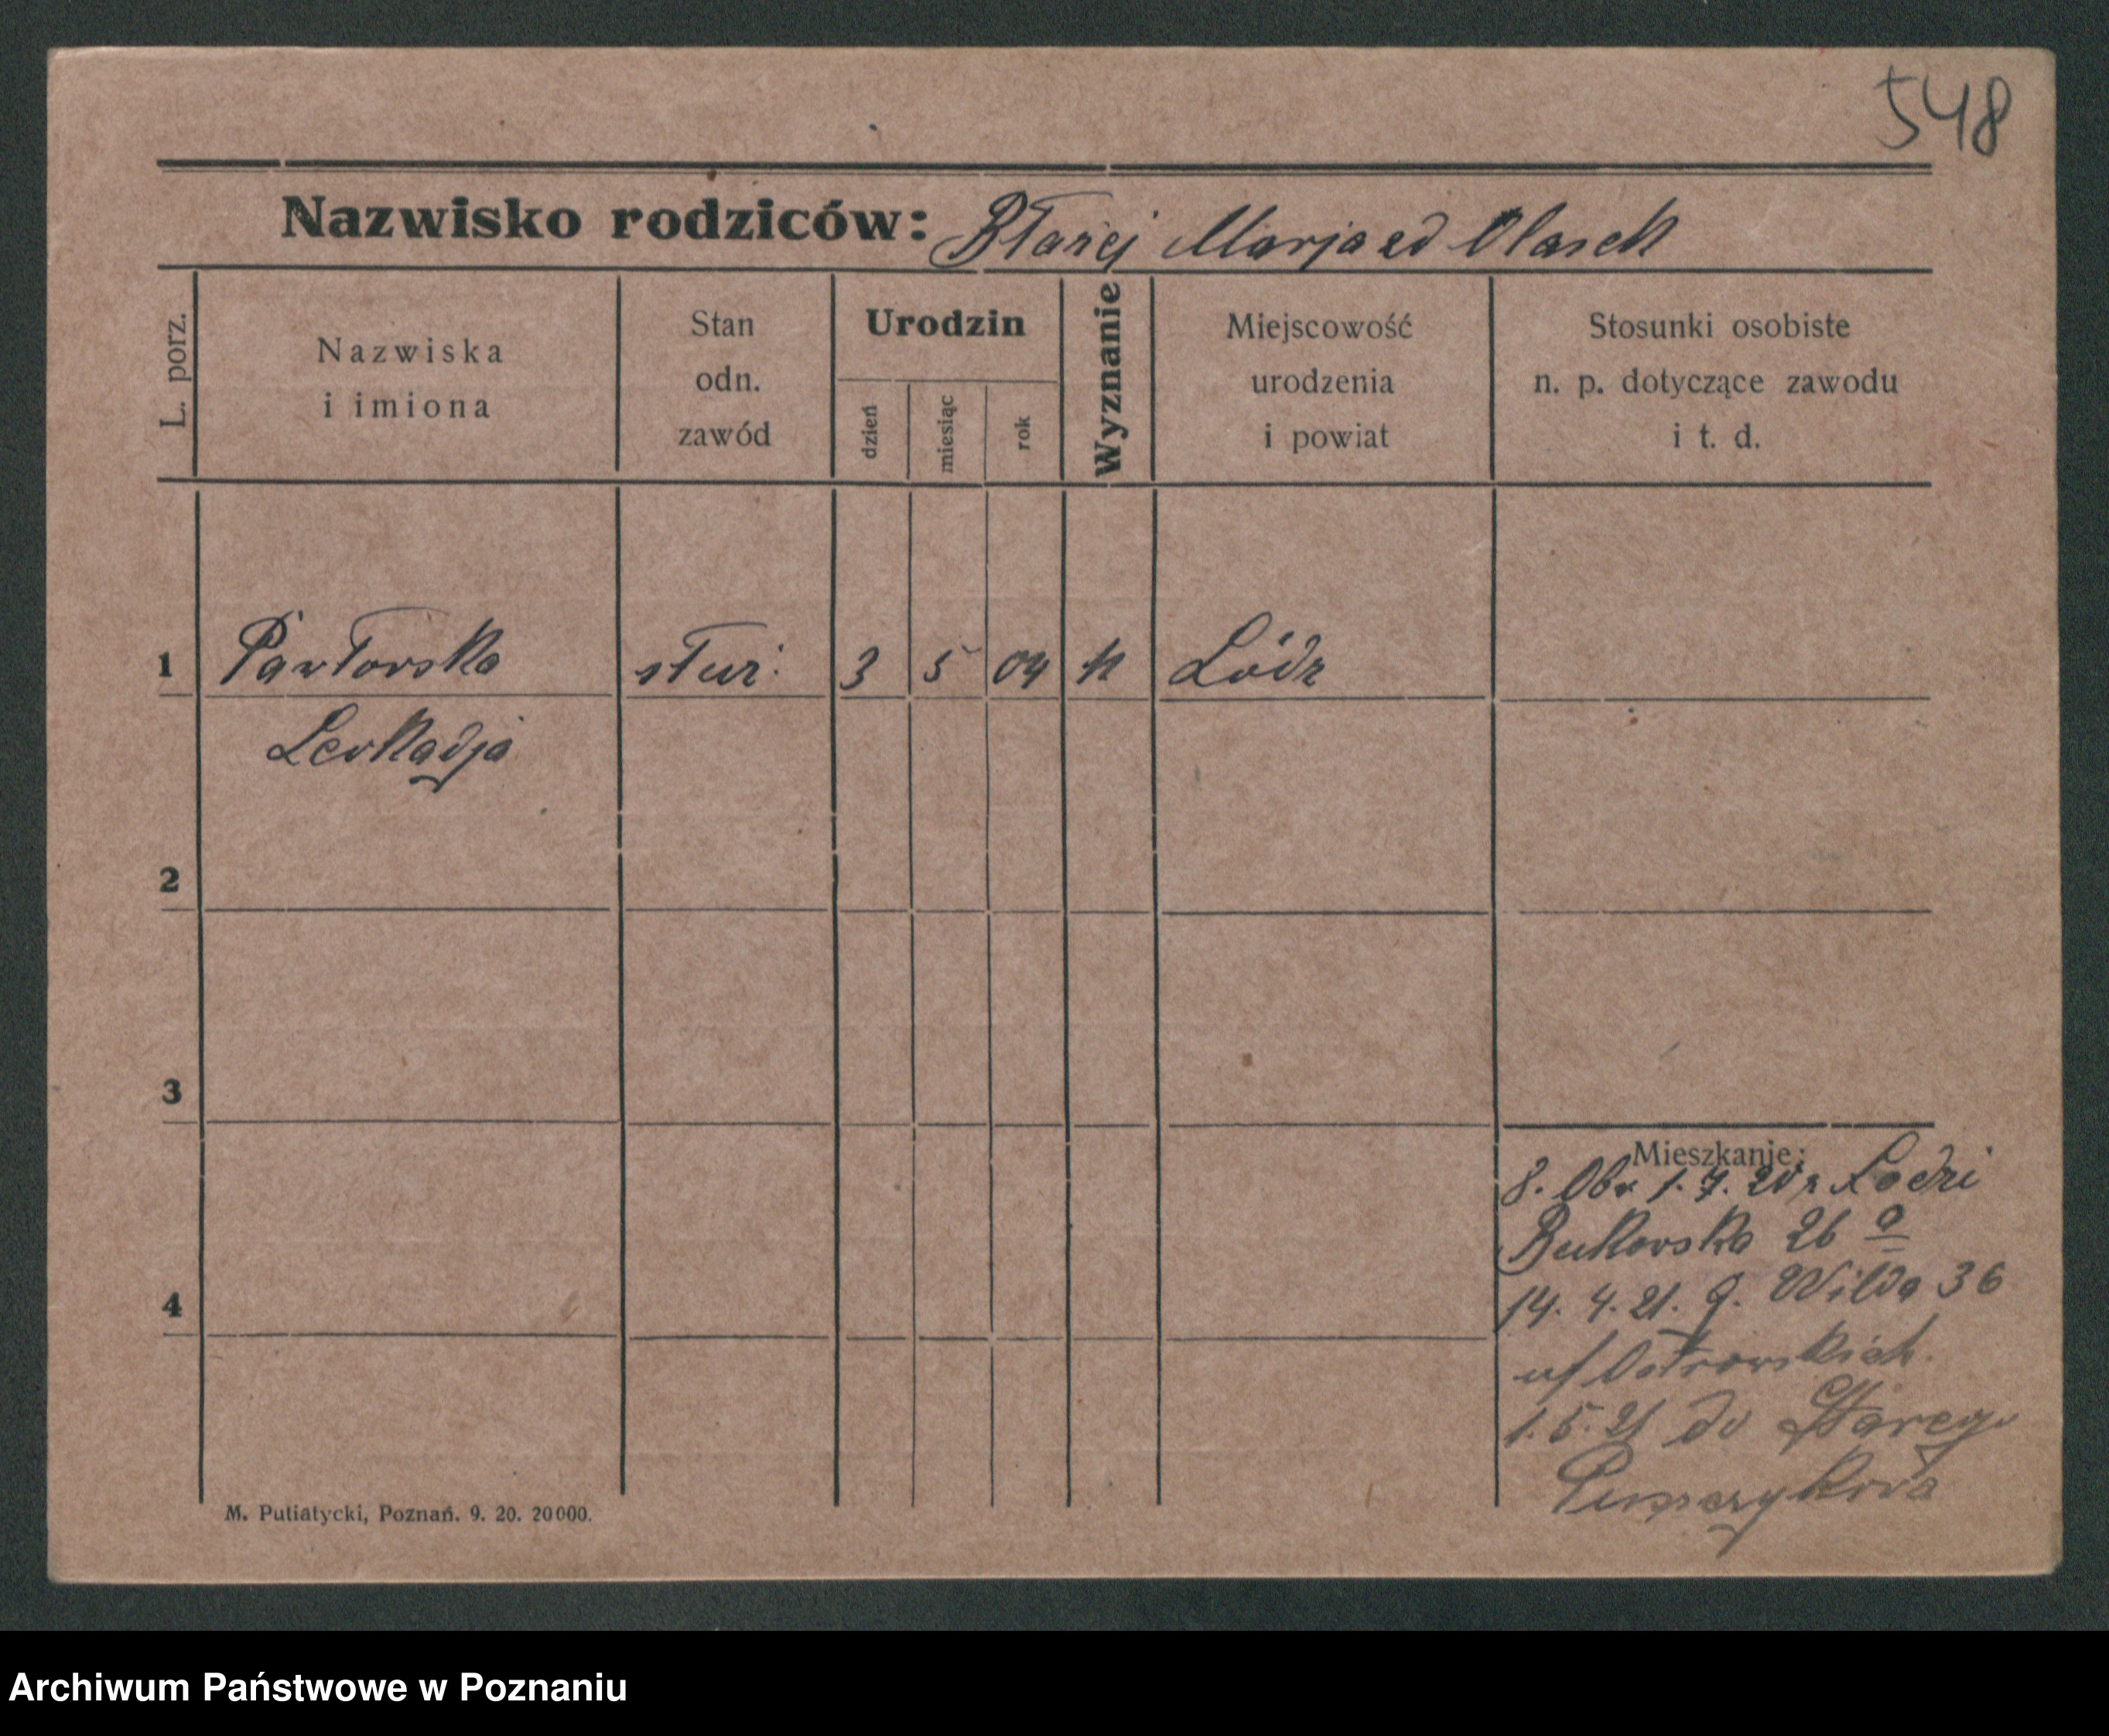 548
Nazwisko rodziców: Błażej Marja zd Olasek
L. porz.
Nazwiska
i imiona
Stan
odn.
zawód
Urodzin
dzień
miesiąc
rok
Wyznanie
Miejscowość
urodzenia
i powiat
Stosunki osobiste
n. p. dotyczące zawodu
i t. d.
1 Pawłowska służ. 3 5 04 k Łódz
Leokadja
2
3
4
Mieszkanie:
8. 1. 7. 20 z Łodzi
Bukowska 26 a
14. 4. 21. g. Wilda 36
u/ Ostrowskich.
1. 5. 21 do Starego
Puszczykowa
M. Putiatycki, Poznań. 9. 20. 20000.
Archiwum Państwowe w Poznaniu